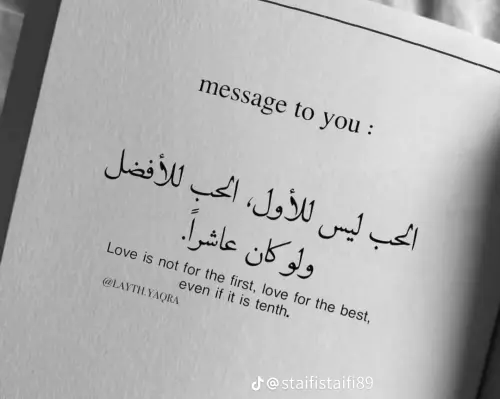 message to you :
الحب ليس للأول، الحب للأفضل
ولو كان عاشراً.
Love is not for the first, love for the best,
even if it is tenth.
@LAYTH.YAQRA
@staifistaifi89